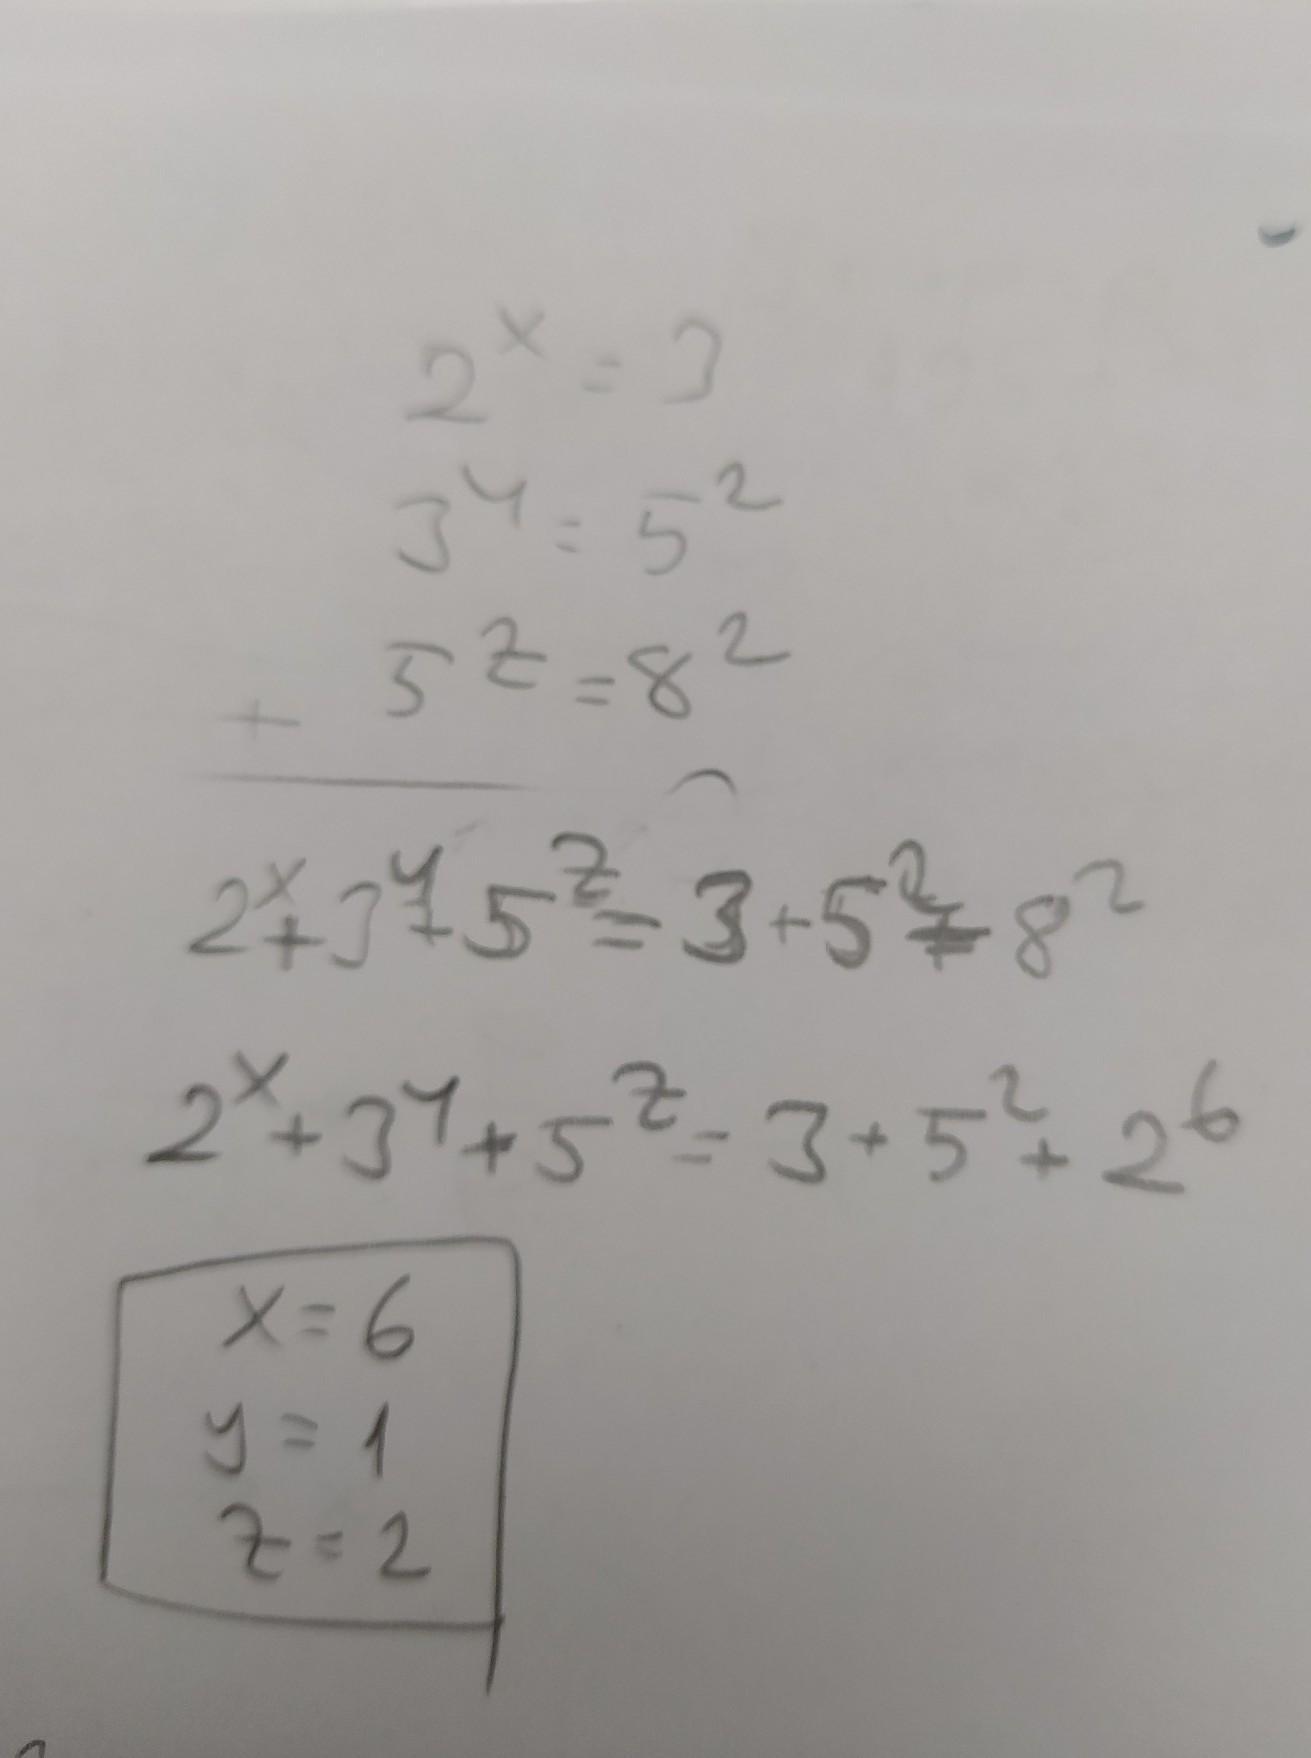 2^x = 3
3^y = 5^2
5^z = 8^2
+
2^x + 3^y + 5^z = 3 + 5^2 + 8^2
2^x + 3^y + 5^z = 3 + 5^2 + 2^6
x = 6
y = 1
z = 2